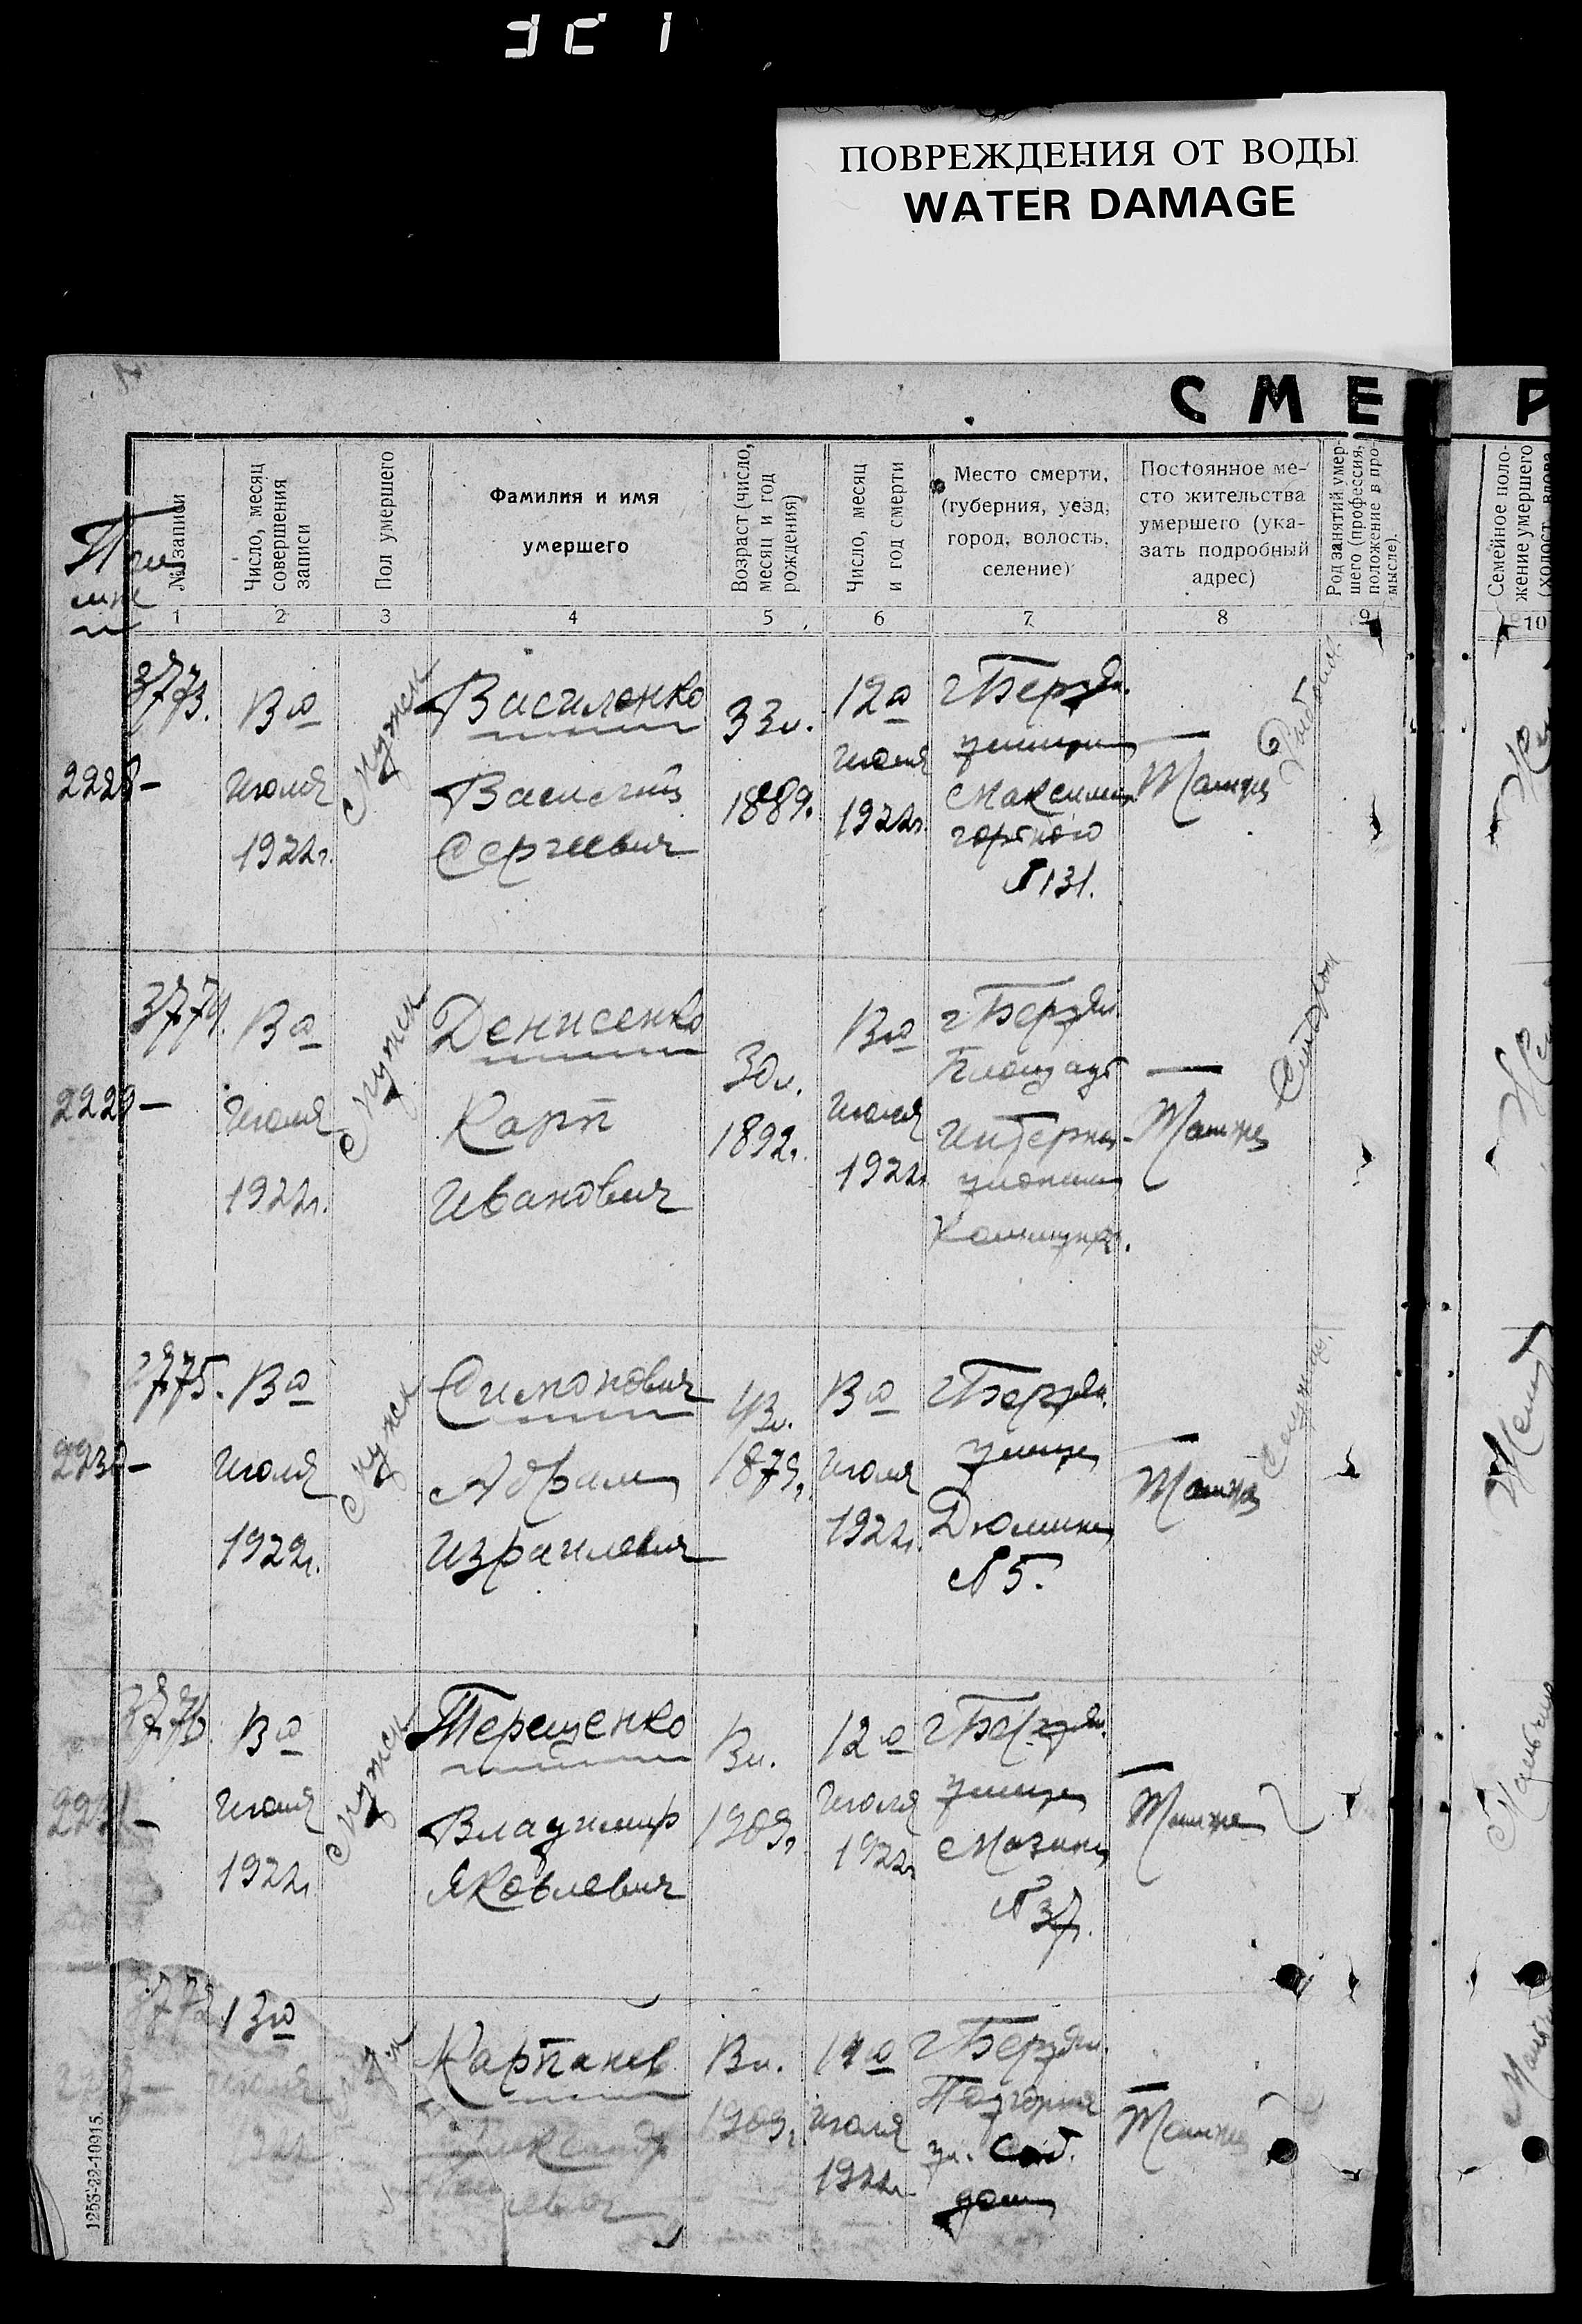 ПОВРЕЖДЕНИЯ ОТ ВОДЫ
WATER DAMAGE
СМЕ Р
№ записи
Число, месяц совершения записи
Пол умершего
Фамилия и имя
умершего
Возраст (число, месяц и год рождения)
Число, месяц и год смерти
Место смерти,
(губерния, уезд,
город, волость,
селение)
Постоянное ме-
сто жительства
умершего (ука-
зать подробный
адрес)
Род занятий умер-
шего (профессия,
положение в про-
мысле).
Семейное поло-
жение умершего
(холост, вдова
1 2 3 4 5 6 7 8 9 10
3773.
2228 —
13го
июля
1922г.
Мужск
Василенко
Василий
Сергеевич
33л.
1889г.
12го
июля
1922г.
г Бердян.
улица
Максима
Горького
№ 131.
—
Там же
3774.
2229 —
13го
июля
1922г.
Мужск
Денисенко
Карп
Иванович
30л.
1892г.
13го
июля
1922г.
г Бердян
Площадь
Интерна-
—
Там же
3775.
2230 —
13го
июля
1922г.
Мужск
Симонович
Абрам
Израилевич
43л.
1879г.
13го
июля
1922г.
г Бердян.
улица
Дюмина
№ 5.
—
Там же
Женат
3776
2231 —
13го
июля
1922г
Мужск
Терещенко
Владимир
Яковлевич
13л.
1909г.
12го
июля
1922г.
г Бердян.
улица
Мазина
№ 37.
—
Там же
13го
июля
1922
13л.
1909г.
июля
1922г.
г Бердян.
ул.
дом
—
Там же
1253-22-10915.